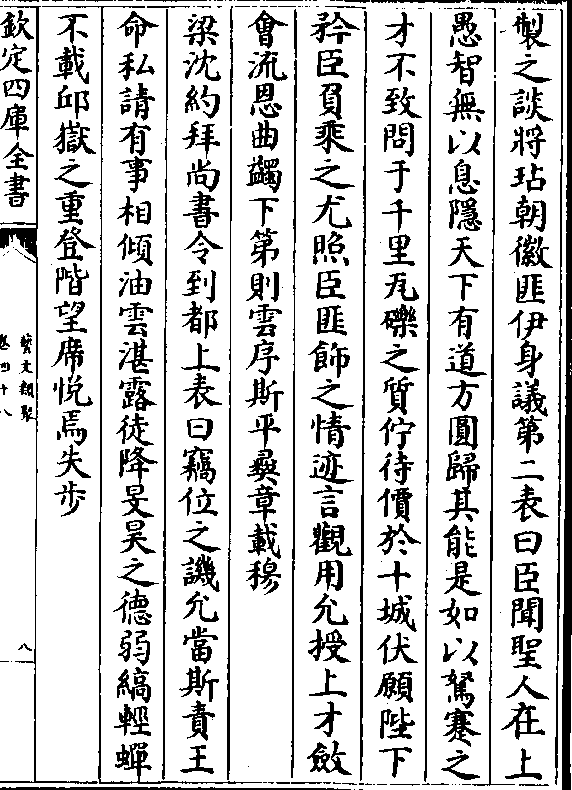 製之談將玷朝徽匪伊身議第二表曰臣聞聖人在上
愚智無以息隱天下有道方圓歸其能是如以駑蹇之
才不致問于千里瓦礫之質佇待價於十城伏願陛下
矜臣負乘之尤照臣匪飾之情迹言觀用允授上才斂
㑹流恩曲蠲下第則雲序斯平彛章載穆
梁沈約拜尚書令到都上表曰竊位之譏允當斯責王
命私請有事相傾油雲湛露徒降旻昊之德弱縞輕蟬
不載邱嶽之重登階望席恱焉失步
欽定四庫全書
藝文類聚
卷四十八
八